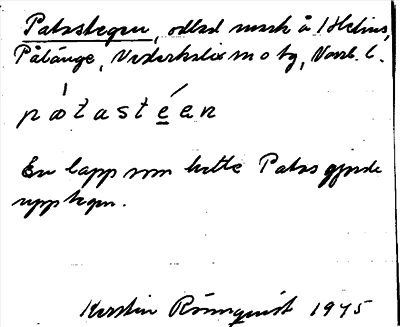 Patastegen, odlad mark å 1 Helins,
Pålänge, Nederkalix sn o tg, Norrb. l.
pàtastέen
En lapp som hette Patas gjorde
upp tegen.
Kerstin Rönnquist 1945